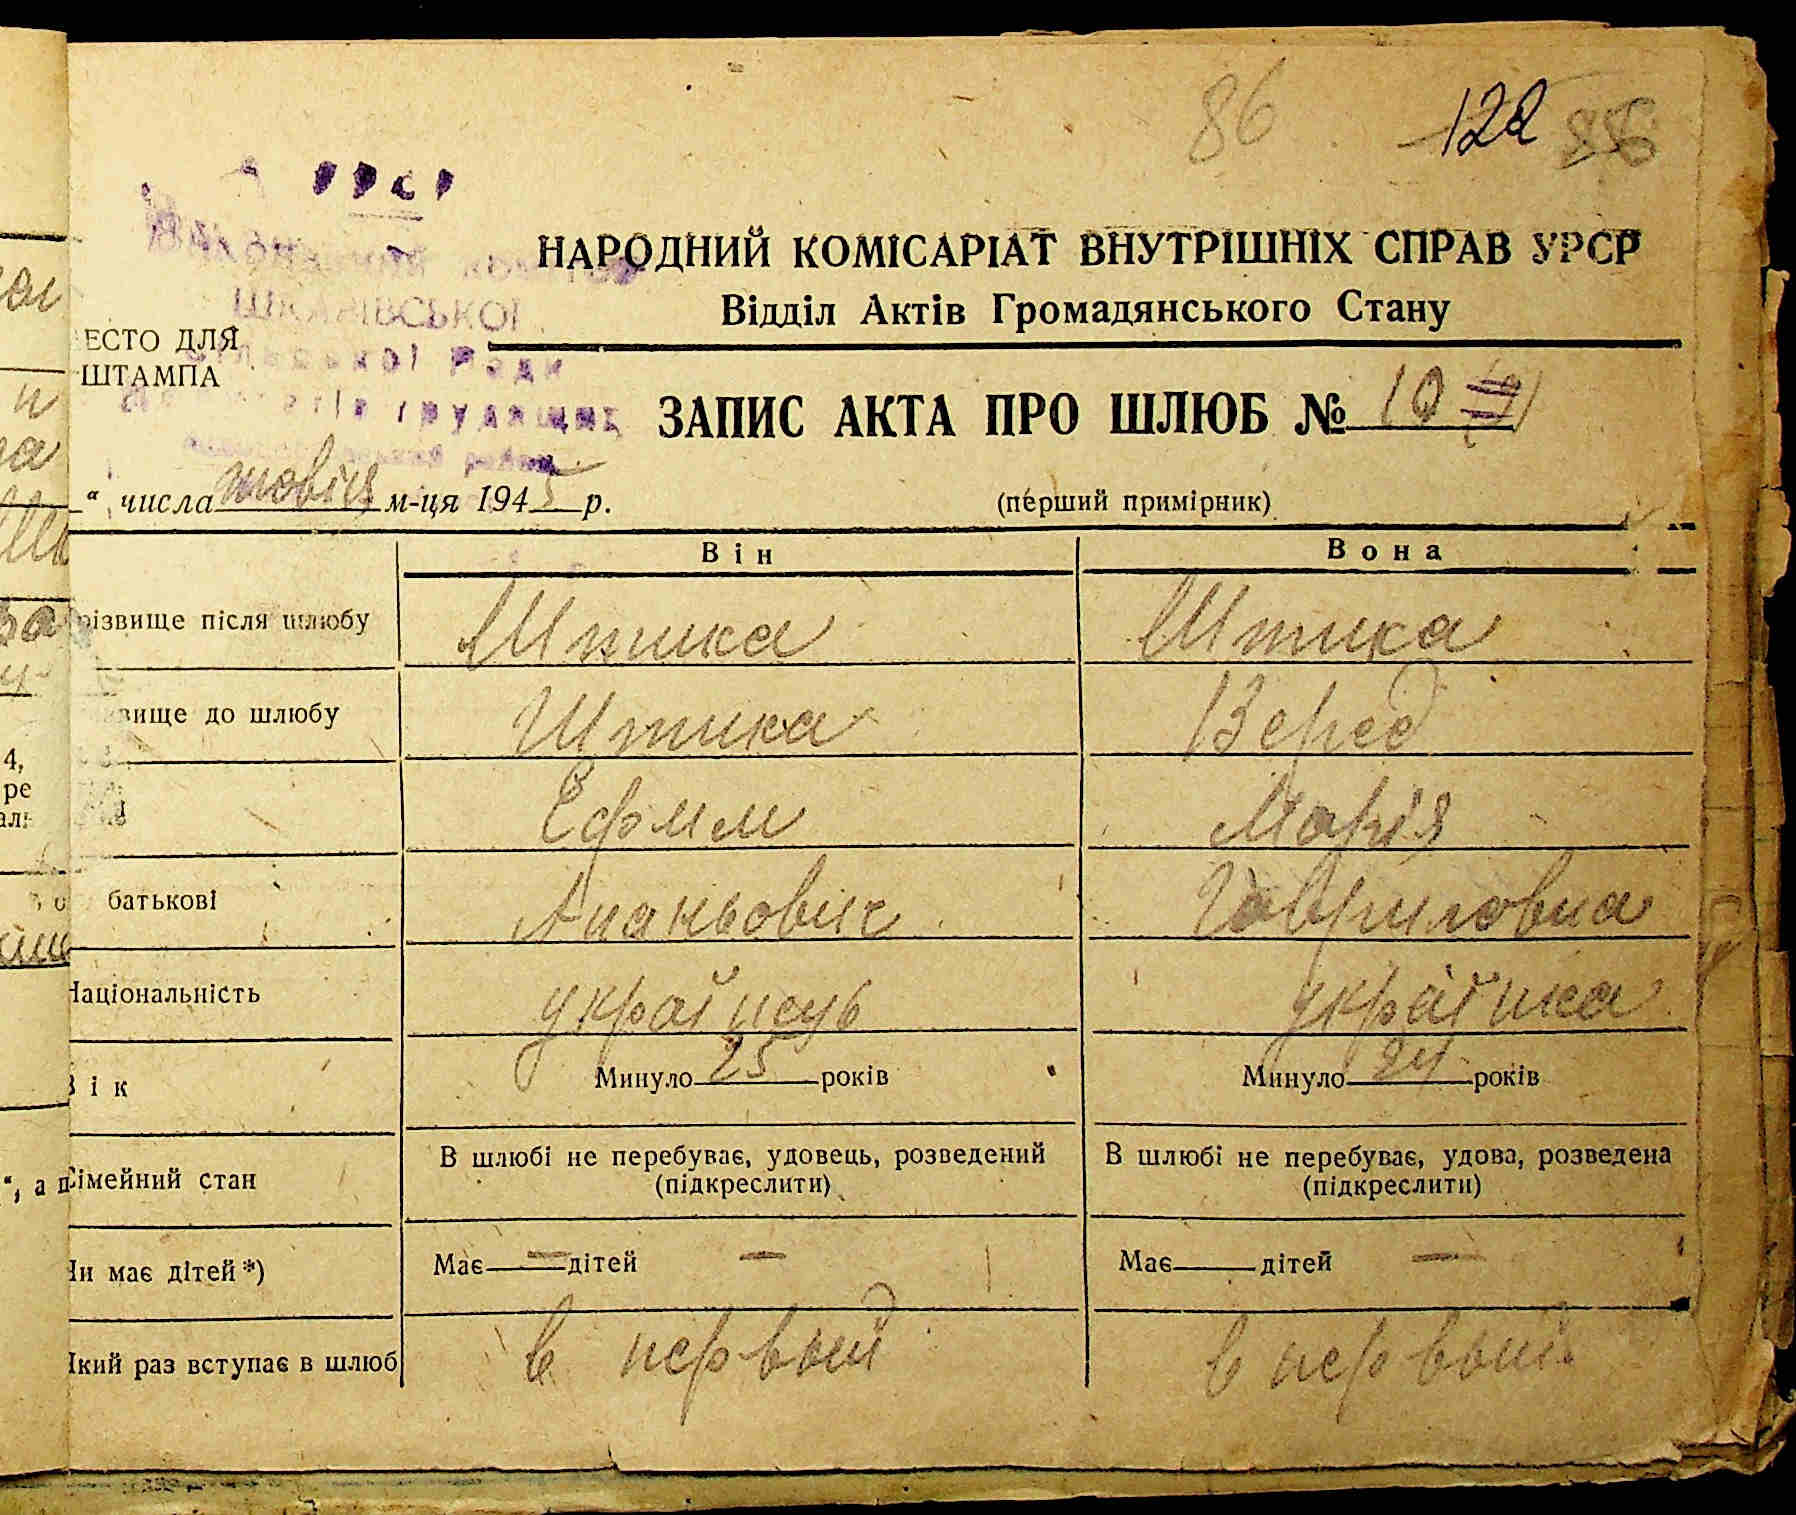 86 122 86
УРСР
ШКАРІВСЬКОЇ
сільської Ради
депутатів трудящих
НАРОДНИЙ КОМІСАРІАТ ВНУТРІШНІХ СПРАВ УРСР
Відділ Актів Громадянського Стану
ЕСТО ДЛЯ
ШТАМПА
ЗАПИС АКТА ПРО ШЛЮБ № 10
“ числа жовтня м-ця 1945 р.
(перший примірник)
Він Вона
різвище після шлюбу Штика Штика
звище до шлюбу Штика Веред
Єфим Марія
батькові Ананьович Гавриловна
Національність українець українка
Вік Минуло 25 років Минуло 24 років
Сімейний стан В шлюбі не перебуває, удовець, розведений В шлюбі не перебуває, удова, розведена
(підкреслити) (підкреслити)
Чи має дітей*) Має — дітей — Має дітей —
Який раз вступає в шлюб в первый в первый